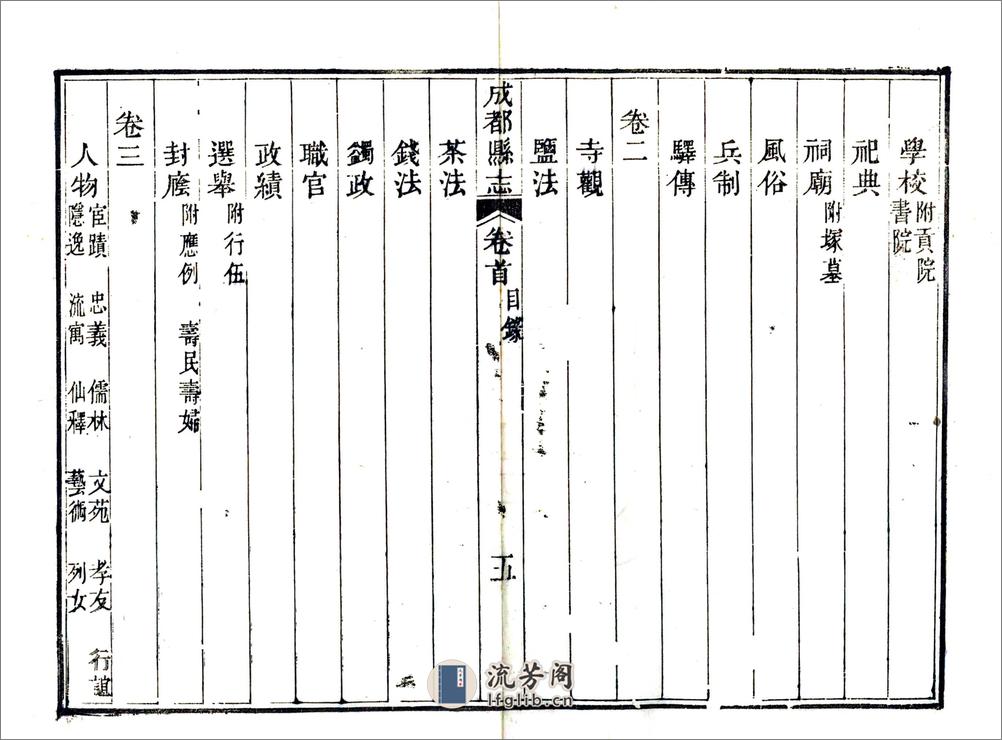 學校 附貢院
書院
祀典
祠廟 附塚墓
風俗
兵制
驛傳
卷二
寺觀
鹽法
成都縣志 卷首 目錄 五
茶法
錢法
蠲政
職官
政績
選舉 附行伍
封廕 附應例 壽民壽婦
卷三
人物 宦蹟 忠義 儒林 文苑 孝友 行誼
隱逸 流寓 仙釋 藝術 列女
流芳阁
lfglib.cn